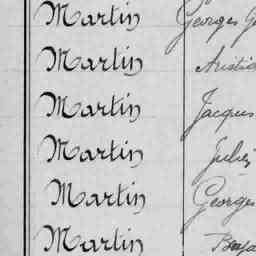 Martin Georges
Martin
Martin Jacques
Martin
Martin Georges
Martin